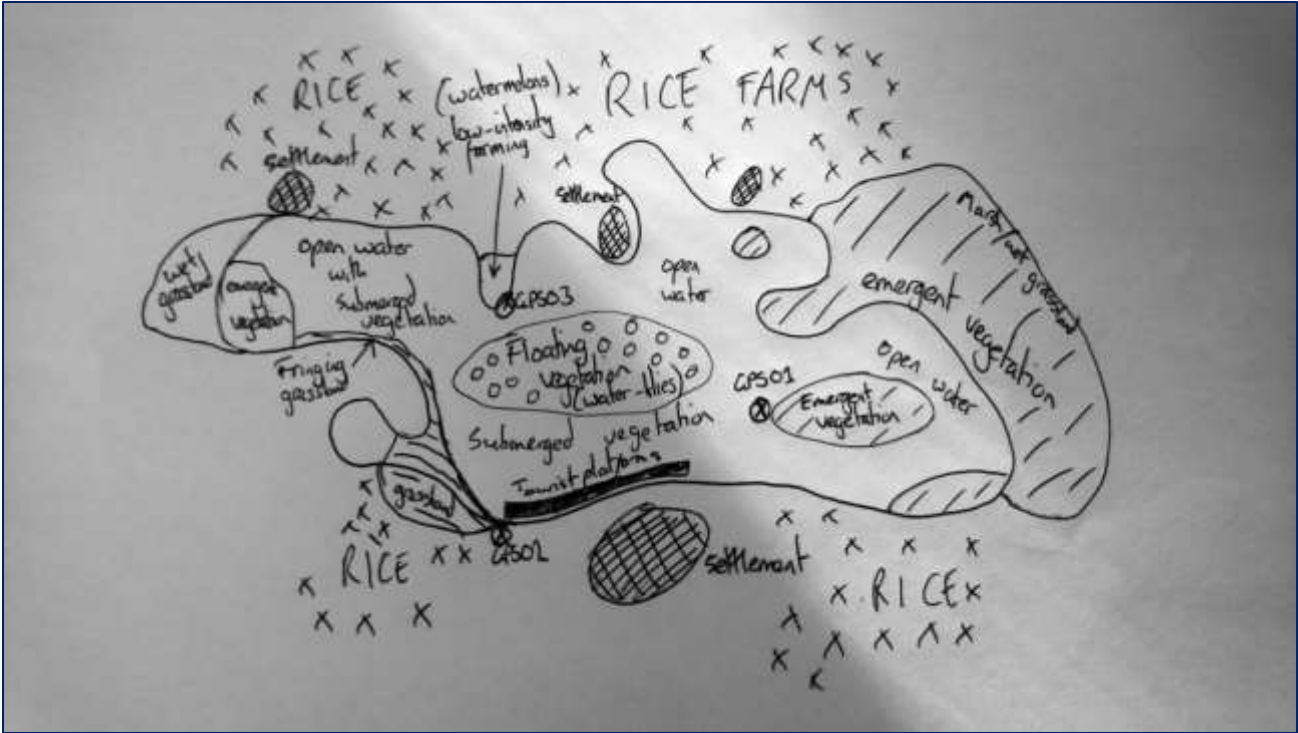 RICE
(watermelons)
low-intesity
farming
RICE FARMS
settlement
settlement
Marsh/wet grassland
wet/
grassland
emergent
vegetation
open water
with
submerged
vegetation
open
water
emergent
vegetation
GPS03
Fringing
grassland
Floating
vegetation
(water-lilies)
GPS01
Emergent
vegetation
open water
Submerged vegetation
Tourist platforms
grassland
GPS02
RICE
settlement
RICE